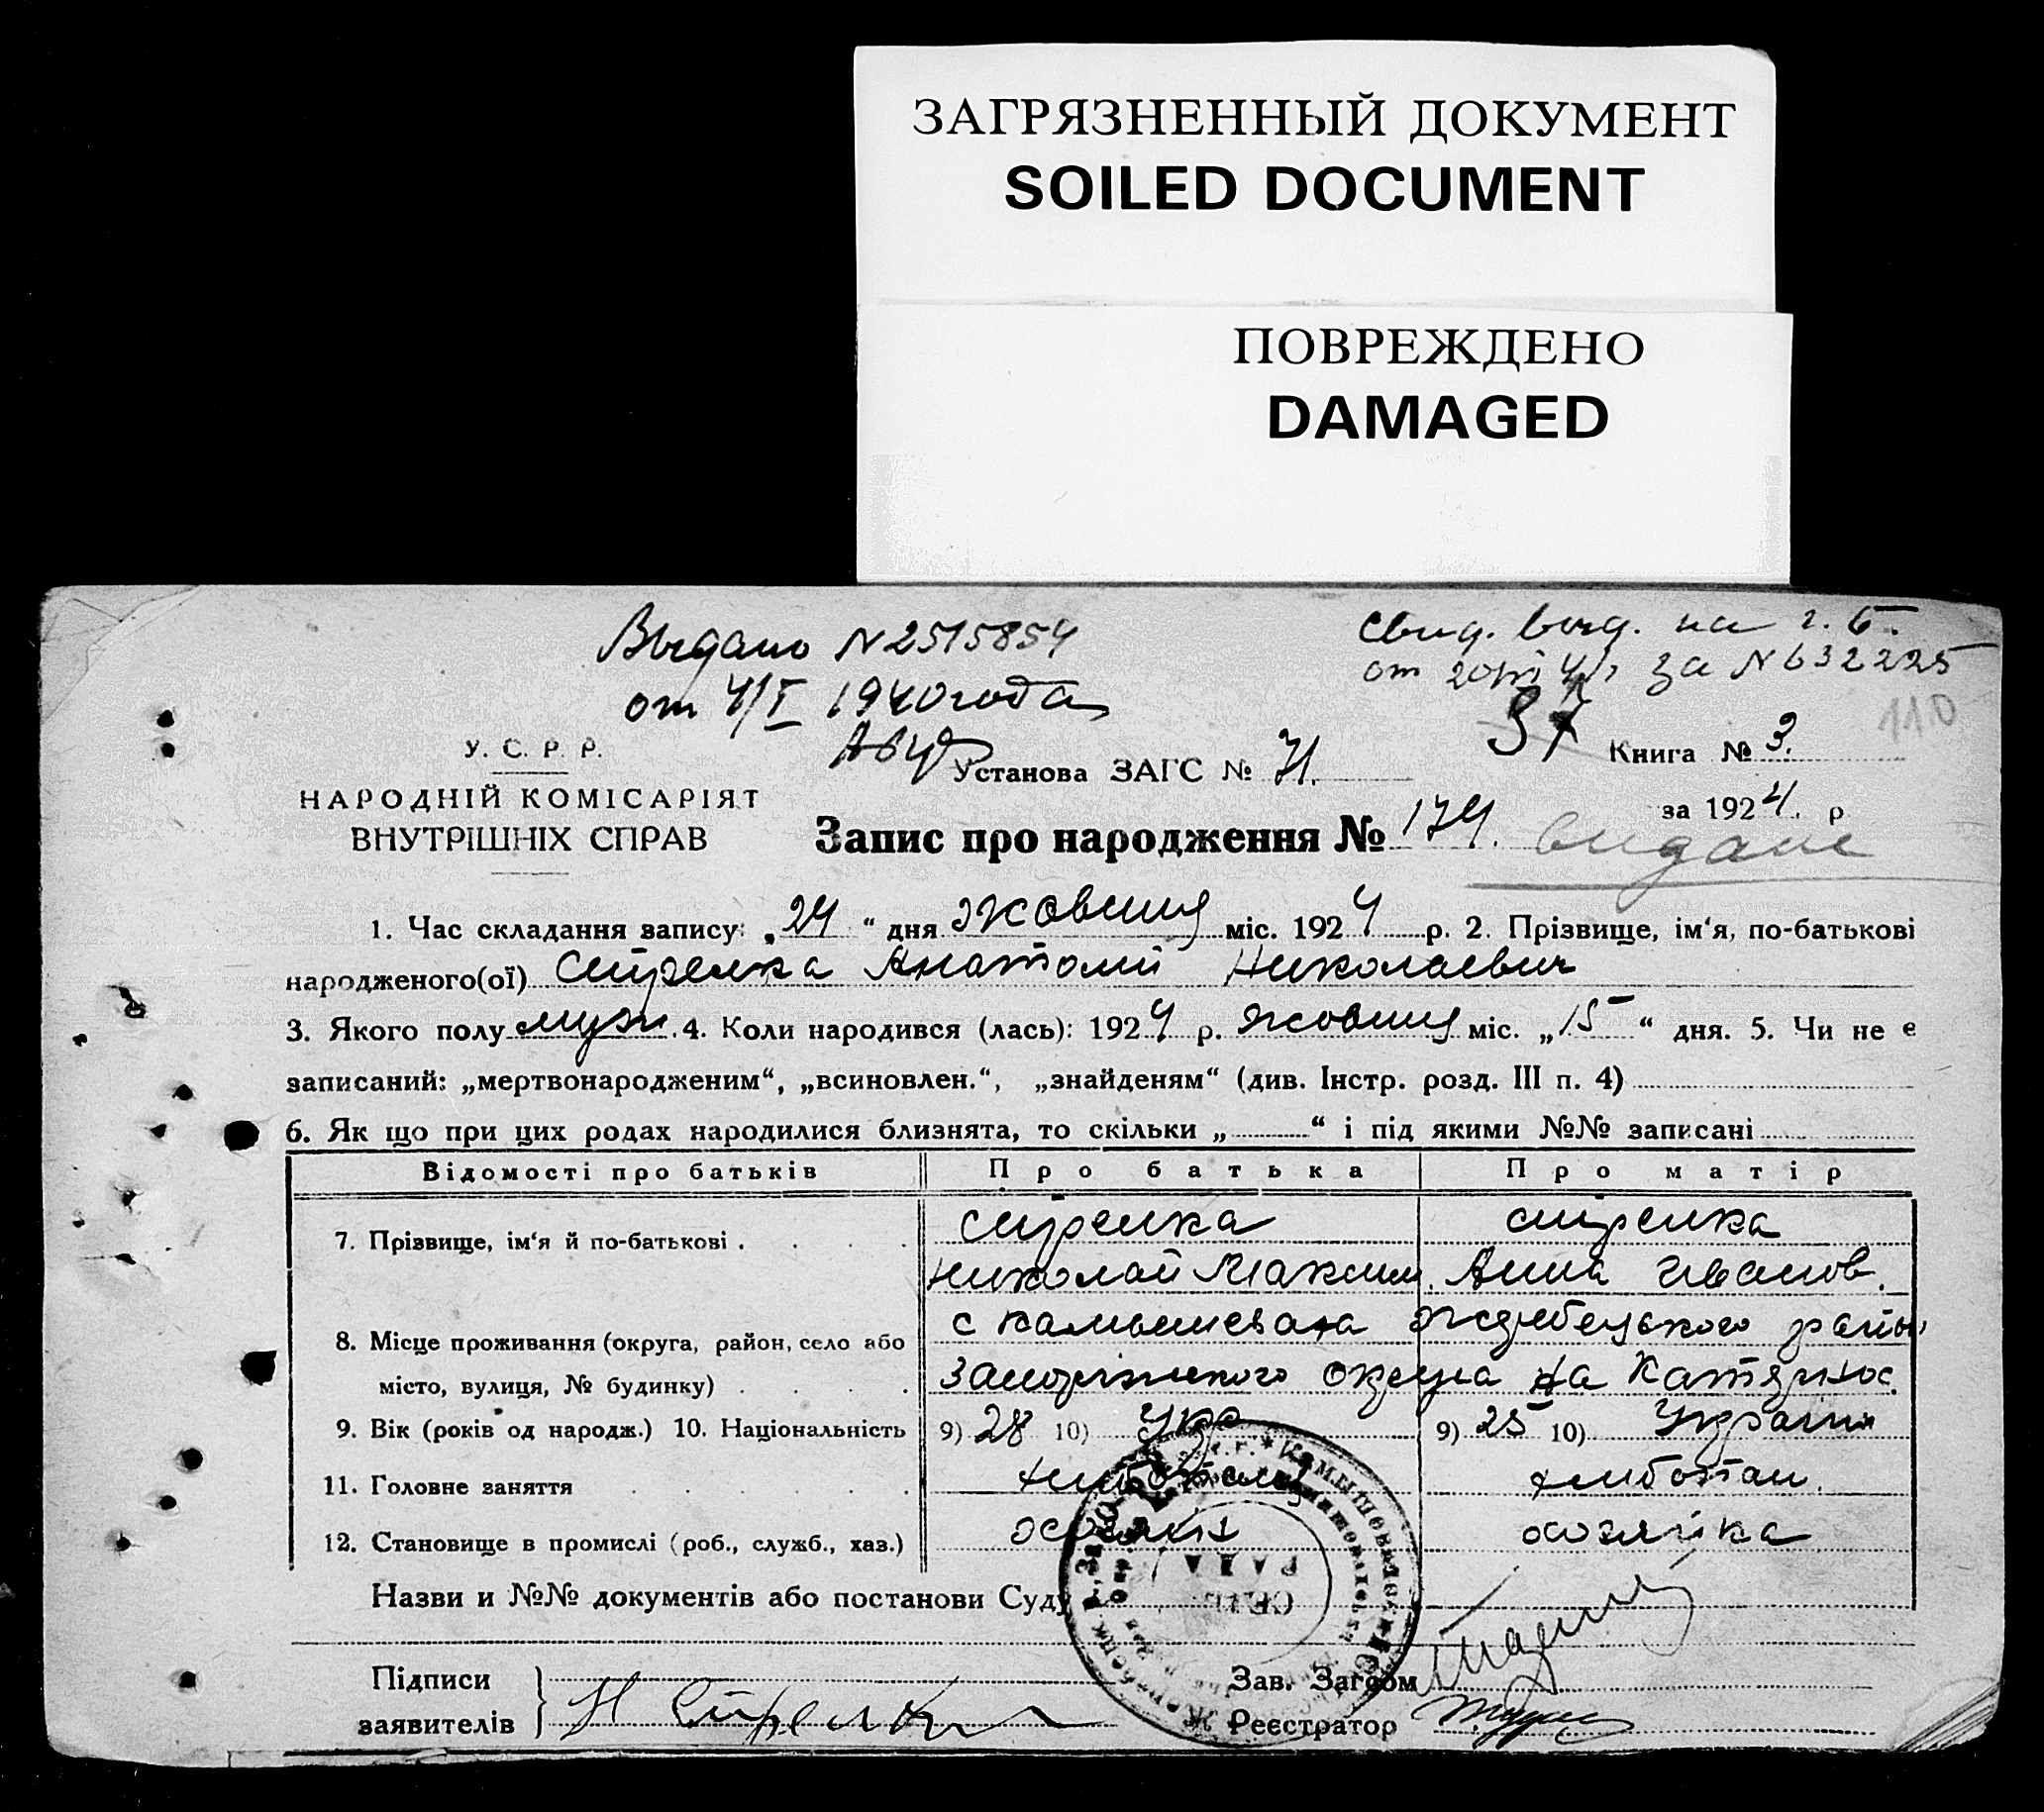 ЗАГРЯЗНЕННЫЙ ДОКУМЕНТ
SOILED DOCUMENT
ПОВРЕЖДЕНО
DAMAGED
Выдано N 2515854
от 4/I 1940 года
на г. б.
от за N 632225
37
110
У. С. Р. Р.
НАРОДНІЙ КОМІСАРІЯТ
ВНУТРІШНІХ СПРАВ
Установа ЗАГС № 71.
Книга № 3.
за 1924. р
Запис про народження № 174.
видане
1. Час складання запису: „24“ дня жовтня міс. 1924 р. 2. Прізвище, ім‘я, по-батькові
народженого(ої) Стрелка Анатолий Николаевич
3. Якого полу муж. 4. Коли народився (лась): 1924 р. жовтня міс. „15“ дня. 5. Чи не є
записаний: „мертвонародженим“, „всиновлен.“, „знайденям“ (див. Інстр. розд. III п. 4)
6. Як що при цих родах народилися близнята, то скільки „ “ і під якими №№ записані
Відомості про батьків Про батька Про матір
7. Прізвище, ім‘я й по-батькові . Стрелка Стрелка
Николай Максим. Анна Иванов.
8. Місце проживання (округа, район, село або с Камышеваха Жеребецького район
місто, вулиця, № будинку) . Запорізького округа на Катеринос.
9. Вік (років од народж.) 10. Національність 9) 28 10) Укр 9) 25 10) Украин
11. Головне заняття хлибопаш.
12. Становище в промислі (роб., служб., хаз.) хозяин хозяйка
Назви и №№ документів або постанови Суду
СЕЛЬ
РАДА
Підписи
заявителів
Н Стрелка
Зав. Загсом
Реєстратор